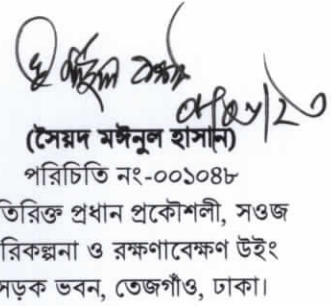 (সৈয়দ মঈনুল হাসান)
পরিচিতি নং-০০১০৪৮
তিরিক্ত প্রধান প্রকৌশলী, সওজ
রিকল্পনা ও রক্ষণাবেক্ষণ উইং
সড়ক ভবন, তেজগাঁও, ঢাকা।